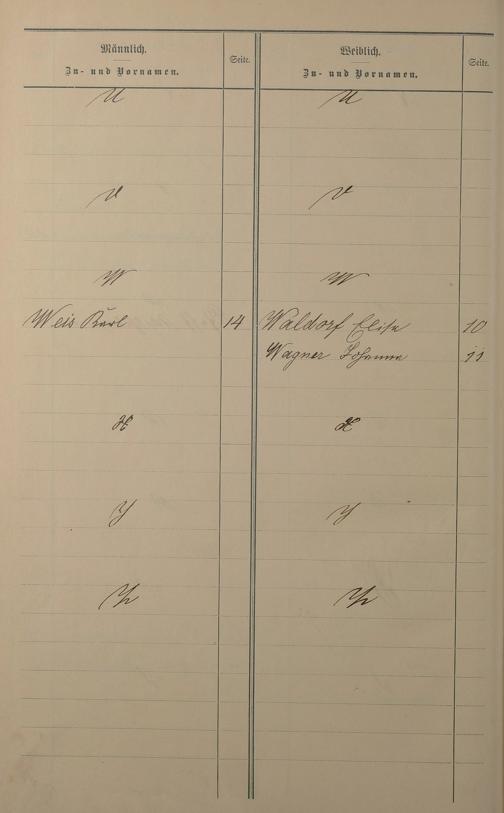 Männlich.
Zu- und Vornamen.
Seite.
U
V
W
Weis Karl 14
X
Y
Z
Weiblich.
Zu- und Vornamen.
Seite.
U
V
W
Waldorf Elise 10
Wagner Johanna 11
X
Y
Z